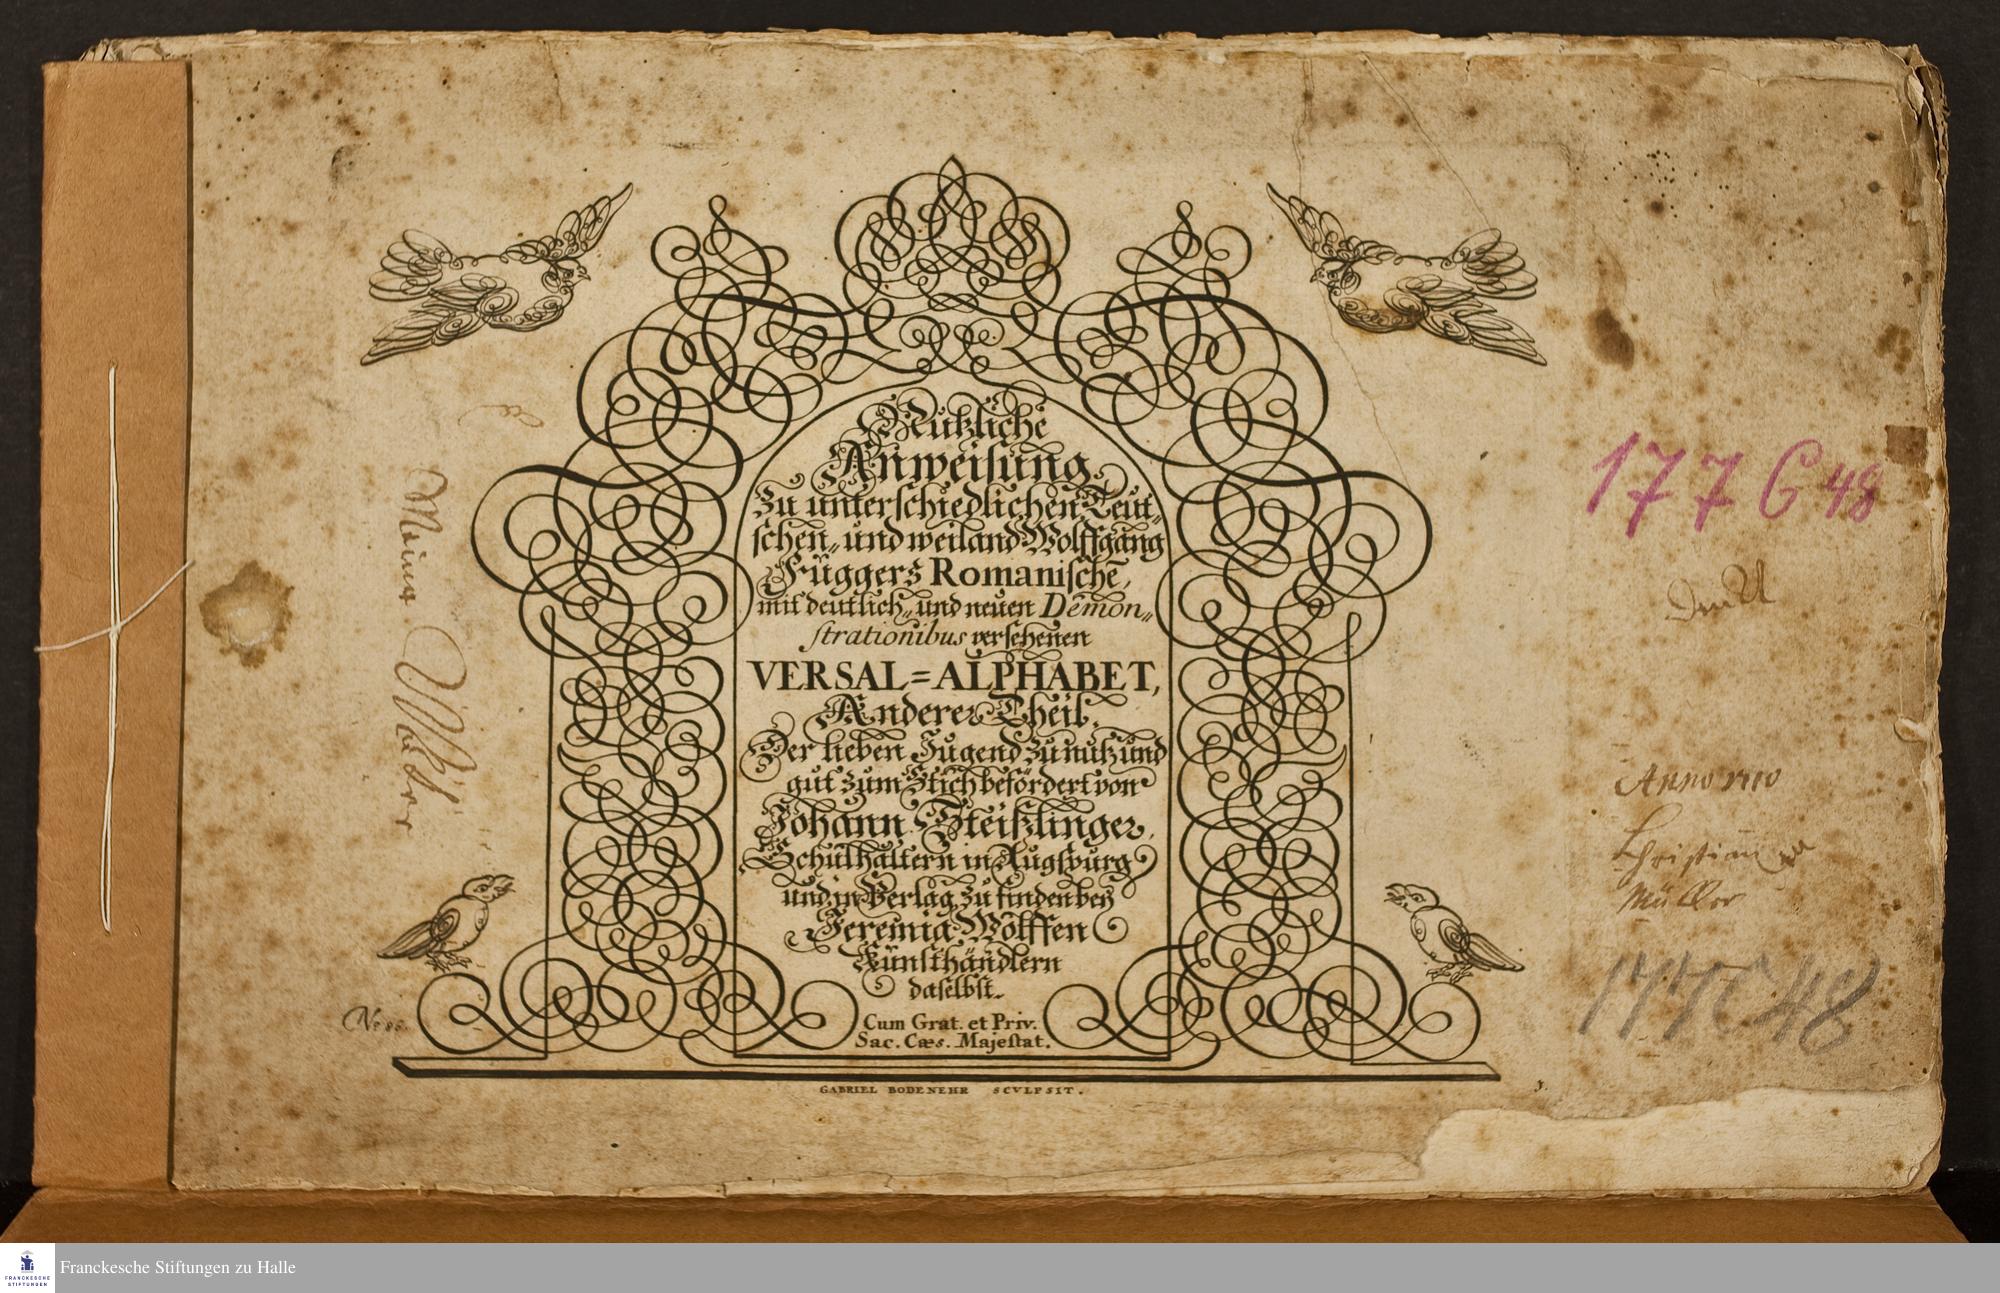 Nützliche
Anweisung
zu unterschiedlichen Teut-
schen, und weiland Wolffgang
Függers Romanische,
mit deutlich, und neuen Demon,,
strationibus versehenen
VERSAL=ALPHABET,
Anderer Theil.
Der lieben Jugend zu nutz und
gut zum Stich befördert von
Johann Steißlinger,
Schulhaltern in Augspurg
und in Verlag zu finden bey
Jeremia Wolffen
Kunsthändlern
daselbst.
Cum Grat. et Priv.
Sac. Cæs. Majestat.
GABRIEL BODENEHR SCVLPSIT.
No 86.
177 C 48
Anno
Christian
Müller
177 C 48
FRANCKESCHE
STIFTUNGEN
Franckesche Stiftungen zu Halle